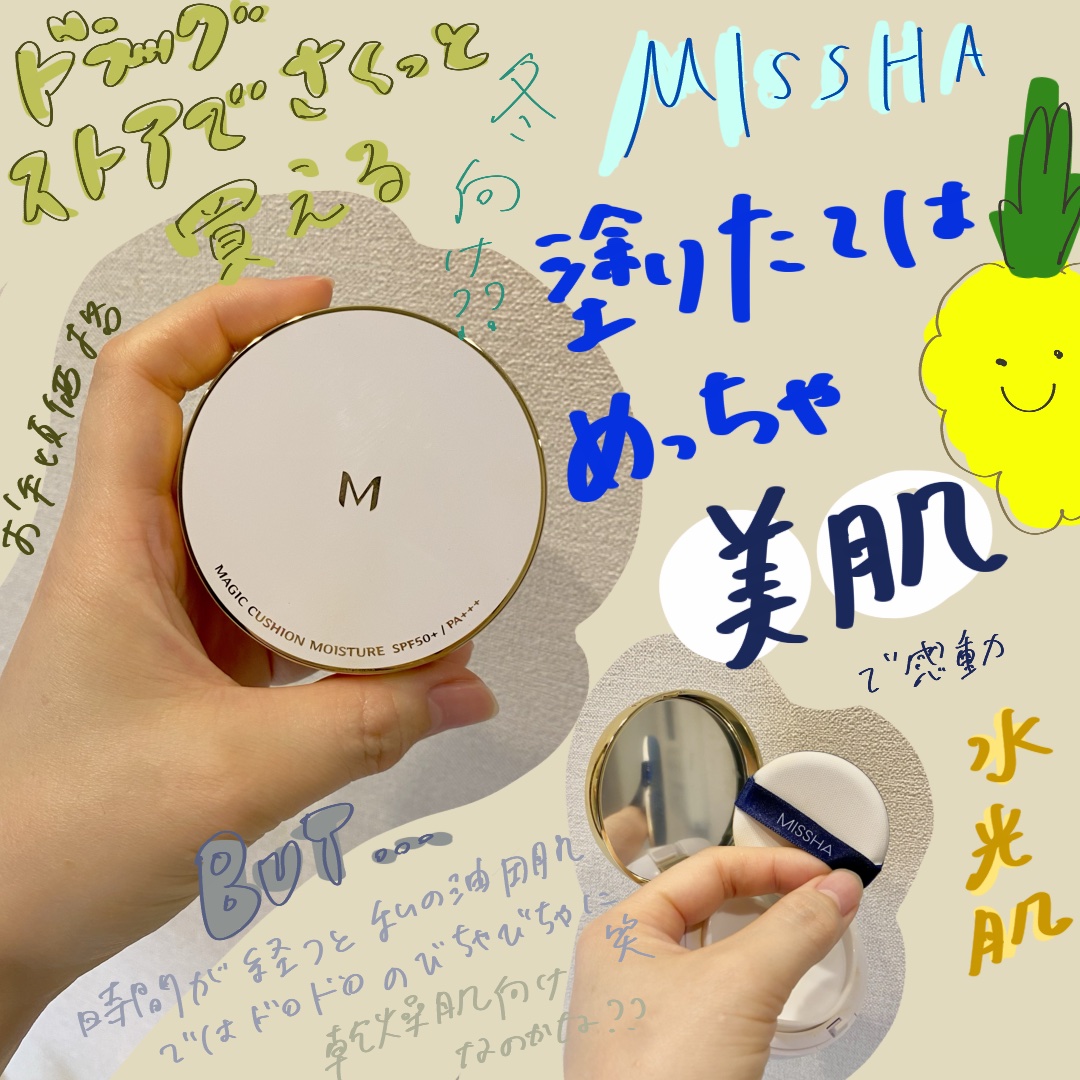 ドラッグ
ストアでさくっと
買える
冬
向け??
MISSHA
塗りたては
めっちゃ
美肌
で感動
水光肌
お手頃価格
M
MAGIC CUSHION MOISTURE SPF50+ / PA+++
MISSHA
BUT...
時間が経つと私の油田肌
ではドロドロのびちゃびちゃに笑
乾燥肌向け
なのかな??